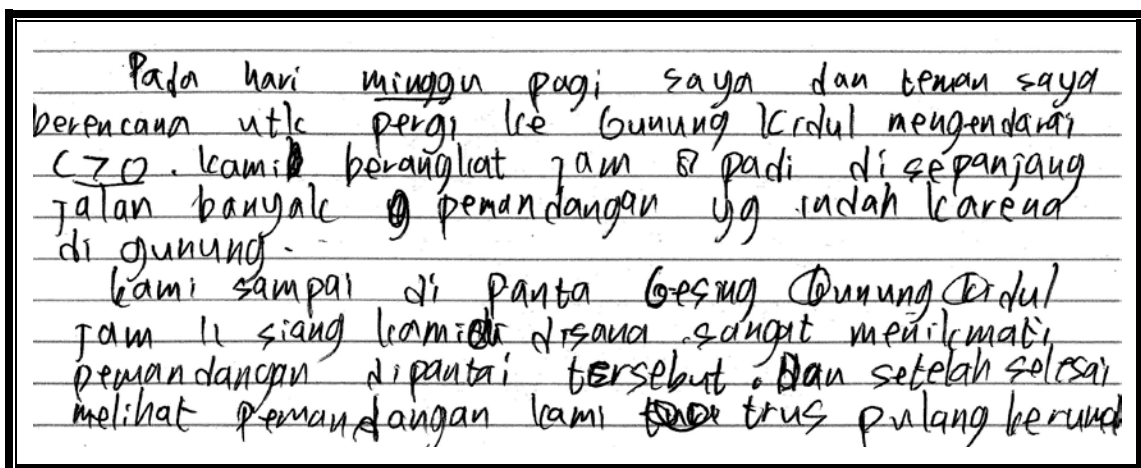 Pada hari minggu pagi saya dan teman saya
berencana utk pergi ke Gunung Kidul mengendarai
C70. kami berangkat jam 8 padi disepanjang
jalan banyak pemandangan yg indah karena
di gunung.
kami sampai di Panta Gesing Gunung Kidul
Jam 11 siang kami disana sangat menikmati
pemandangan dipantai tersebut. Dan setelah selesai
melihat pemandangan kami trus pulang kerumah